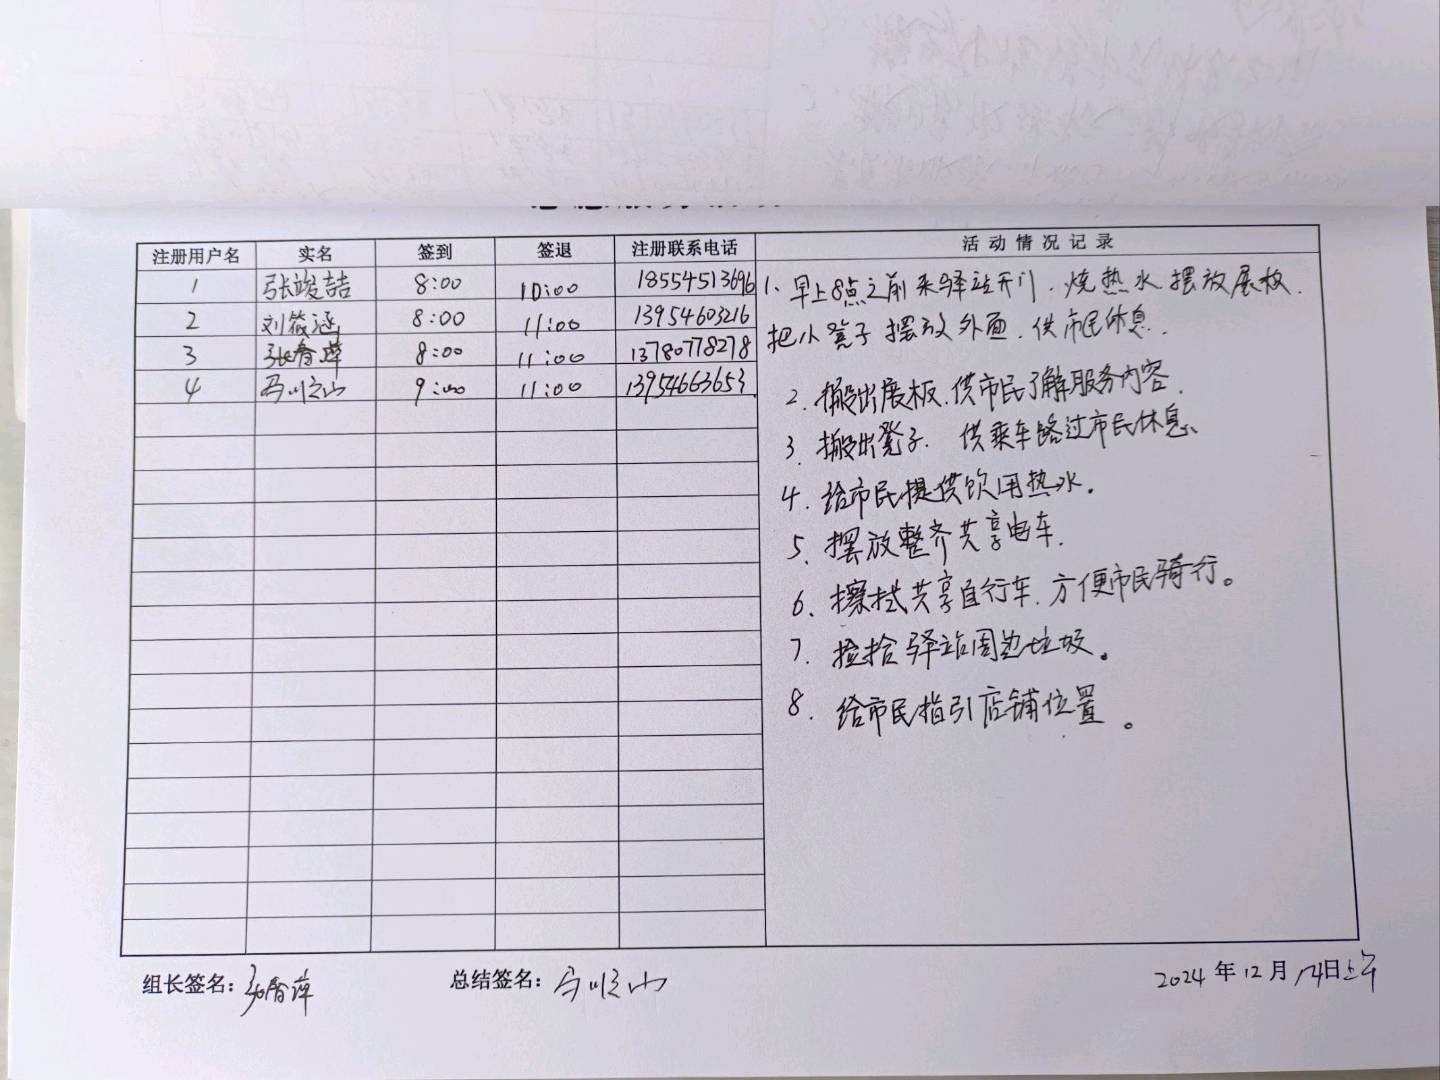 注册用户名 实名 签到 签退 注册联系电话 活动情况记录
1 张竣喆 8:00 10:00 18554513696
2 刘筱涵 8:00 11:00 13954603216
3 张春萍 8:00 11:00 13780778278
4 马顺山 9:00 11:00 13954663653.
1、早上8点之前来驿站开门.烧热水.摆放展板.
把小凳子摆放外面.供市民休息.
2.搬出展板.供市民了解服务内容.
3.搬出凳子.供乘车路过市民休息、
4.给市民提供饮用热水.
5.摆放整齐共享电车.
6、擦拭共享自行车.方便市民骑行。
7.捡拾驿站周边垃圾。
8.给市民指引店铺位置。
组长签名：张春萍 总结签名：马顺山 2024年12月14日上午